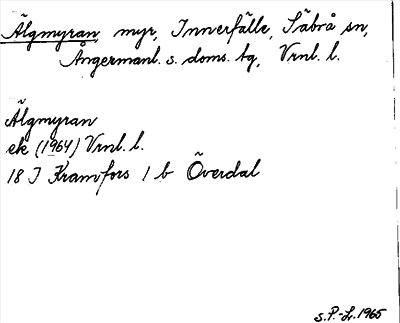 Älgmyran, myr, Innerfälle, Säbrå sn,
Ångermanl. s. doms. tg, Vrnl. l.
Älgmyran
ek (1964) Vrnl. l.
18 I Kramfors 1 b Överdal
s. P.-Lr. 1965